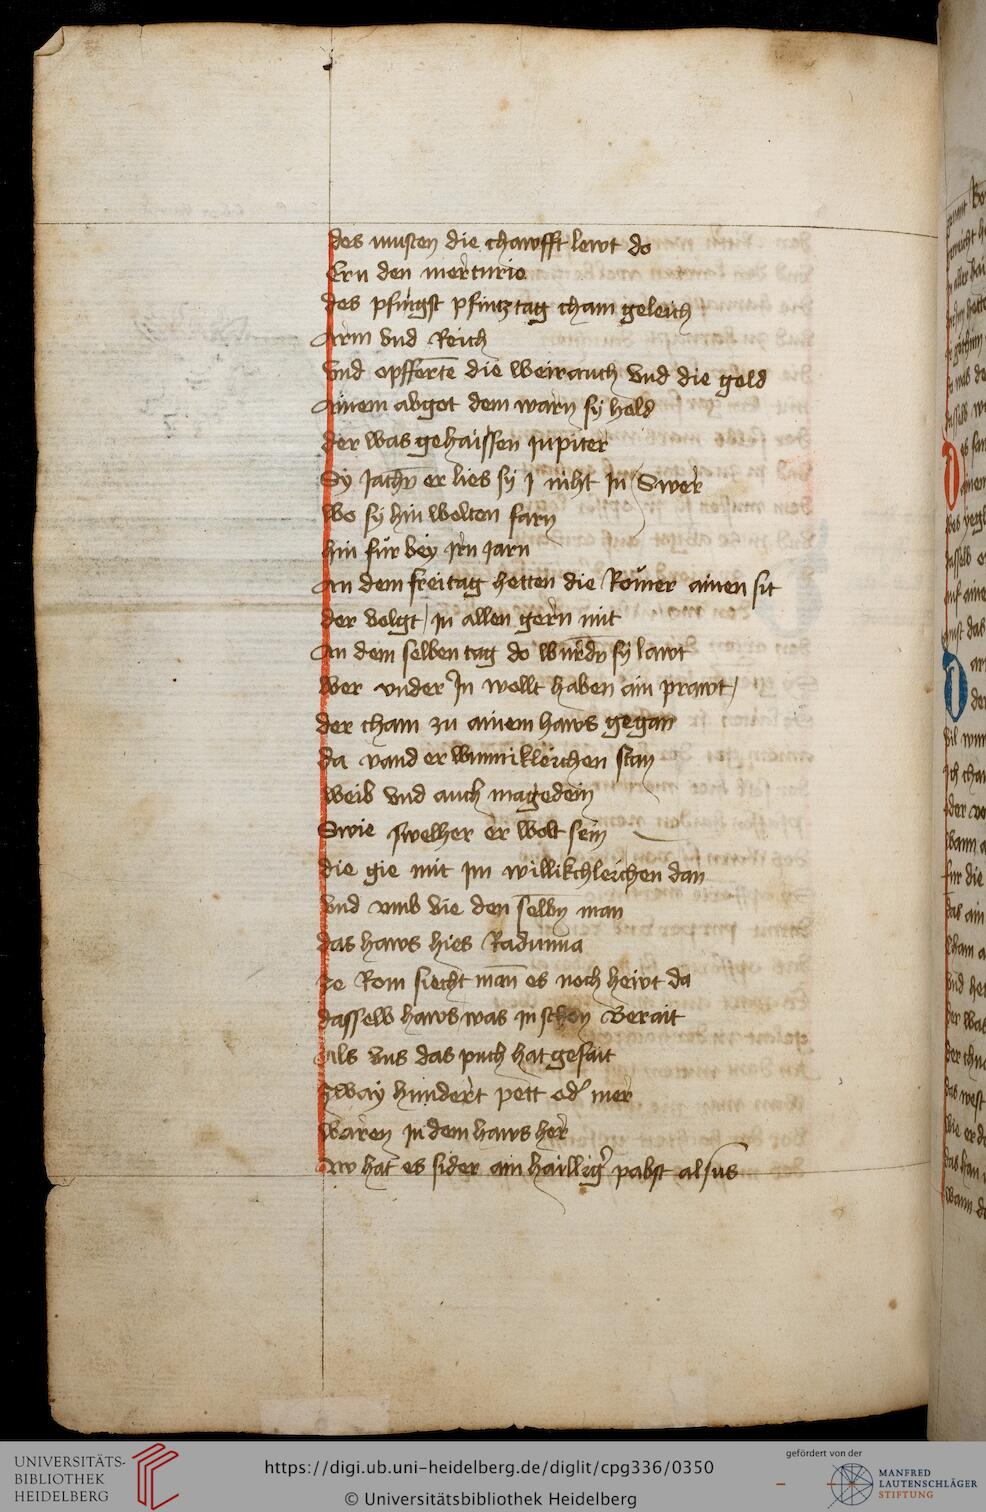 des musten die chawfft lewt do
Ern den merturio
des pfingst pfintztag cham geleich
Arm vnd Reich
vnd opffertē die weirauch vnd die gold
Ainem abgot dem warn sy hold
der was gehaissen Jupiter
Sy Jachn er lies sy J niht In Swer
wo sy hin wolten farn
hin für bey Jrn Jarn
An dem freitag hetten die Römer ainen sit
der volgt in allen gern mit
An dem selben tag do wurdn sy lawt
wer vnder In wollt haben ain prawt
der cham zu ainem haws gegan
da vand er wunnikleichen stan
weib vnd auch magedein
Swie swelher er wolt sein
die gie mit Jm willikchleichen dan
vnd vmb vie den selbn man
das haws hies Radunna
ze Rom siecht man es noch hewt da
dasselb haws was in schon Berait
als vns das puch hat gesait
zway hundert pett od mer
waren in dem haws her
Nw hat es sider ain hailliger pabst alsus
UNIVERSITÄTS-
BIBLIOTHEK
HEIDELBERG
https://digi.ub.uni-heidelberg.de/diglit/cpg336/0350
© Universitätsbibliothek Heidelberg
gefördert von der
MANFRED
LAUTENSCHLÄGER
STIFTUNG